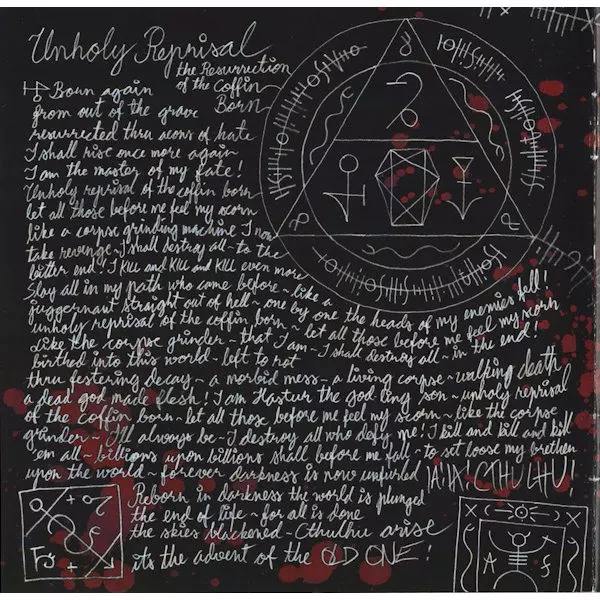 Unholy Reprisal
the Resurrection
of the Coffin
Born
Born again
from out of the grave
resurrected thru aeons of hate
I shall rise once more again
I am the master of my fate!
Unholy reprisal of the coffin born
let all those before me feel my scorn
like a corpse grinding machine I now
take revenge~I shall destroy all~to the
bitter end! I KILL and KILL and KILL even more
Slay all in my path who came before~like a
juggernaut straight out of hell~one by one the heads of my enemies fell!
unholy reprisal of the coffin born~let all those before me feel my scorn
Like the corpse grinder~that I am~I shall destroy all~in the end!
birthed into this world~left to rot
thru festering decay~a morbid mess~a living corpse~walking death
a dead god made flesh! I am Hastur the god king son~unholy reprisal
of the coffin born~let all those before me feel my scorn~like the corpse
grinder~I'll always be~I destroy all who defy me! I kill and kill and kill
'em all~billions upon billions shall before me fall~to set loose my brethen
upon the world~forever darkness is now unfurled IA! IA! CTHULHU!
Reborn in darkness the world is plunged
the end of life~for all is done
the skies blackened~Cthulhu arise
its the advent of the OLD ONE!